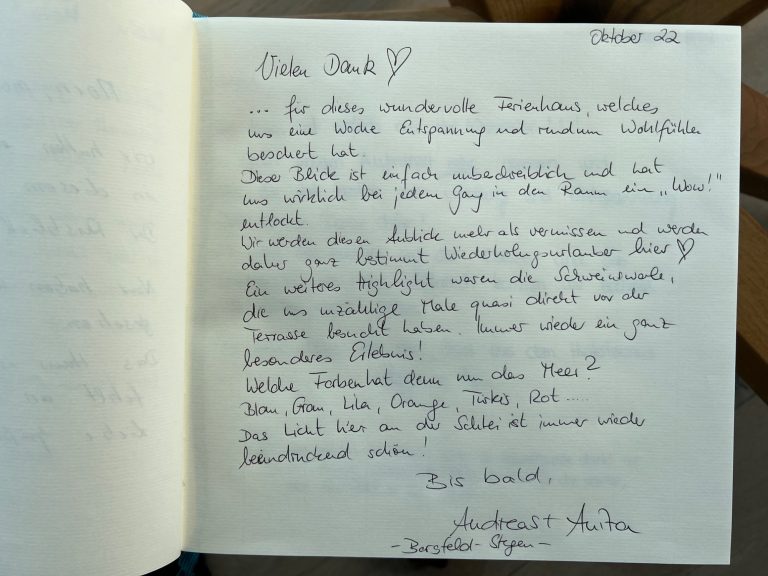 Oktober 22
Vielen Dank ♡
... für dieses wundervolle Ferienhaus, welches
uns eine Woche Entspannung und rundum Wohlfühlen
beschert hat.
Dieser Blick ist einfach unbeschreiblich und hat
uns wirklich bei jedem Gang in den Raum ein „Wow!"
entlockt.
Wir werden diesen Anblick mehr als vermissen und werden
daher ganz bestimmt Wiederholungsurlauber hier ♡
Ein weiteres Highlight waren die Schweinswale,
die uns unzählige Male quasi direkt vor der
Terrasse besucht haben. Immer wieder ein ganz
besonderes Erlebnis!
Welche Farben hat denn nun das Meer?
Blau, Grau, Lila, Orange, Türkis, Rot .....
Das Licht hier an der Schlei ist immer wieder
beeindruckend schön!
Bis bald,
Andreas + Anita
- Bargfeld-Stegen -